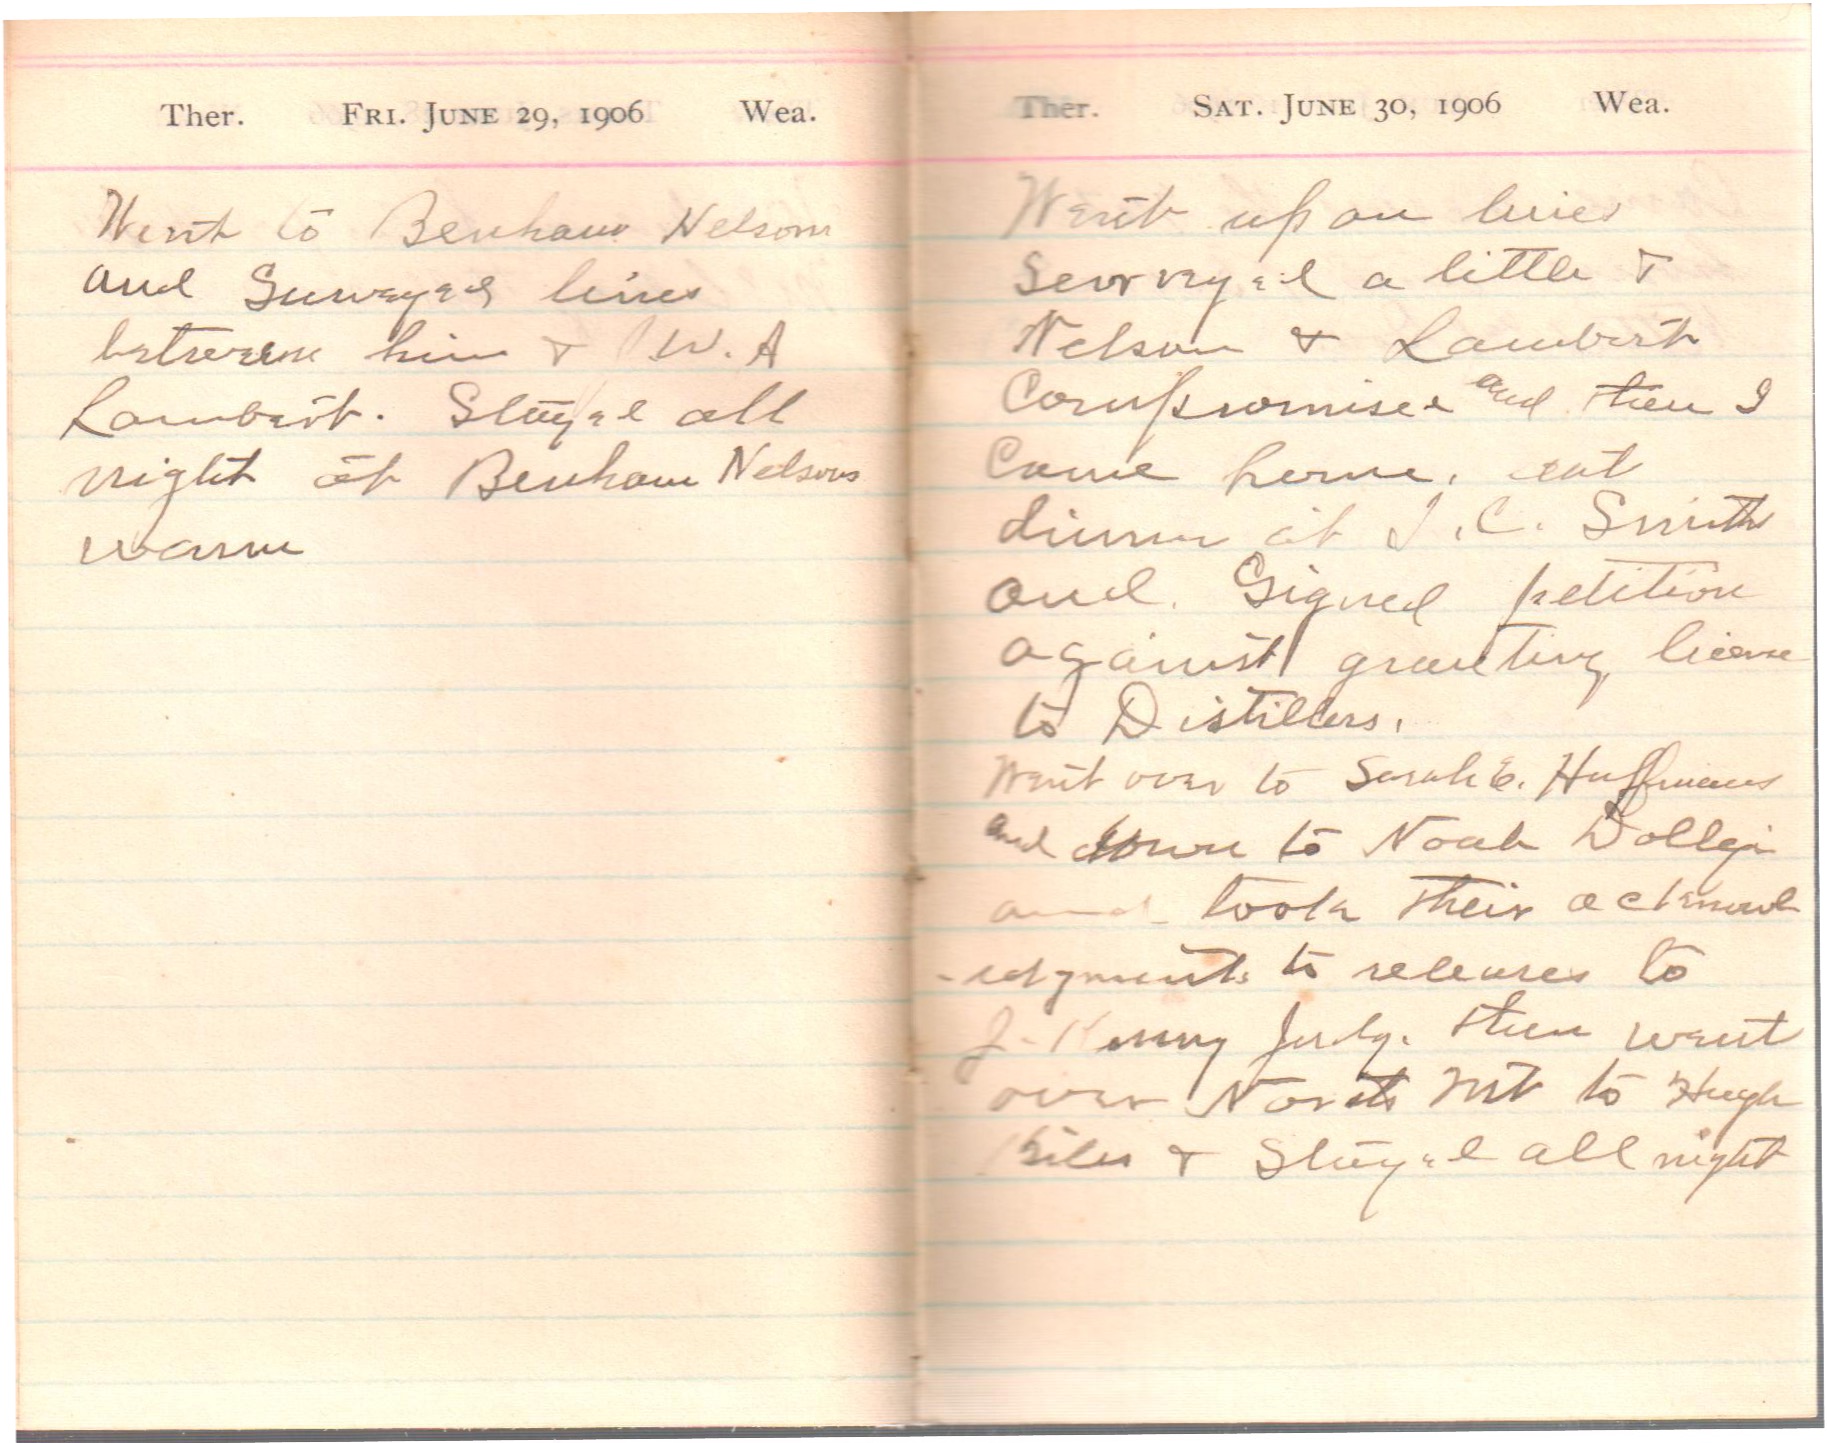 Ther. FRI. JUNE 29, 1906 Wea.
Went to Benham Nelsons
and Surveyed lines
between him & W. A
Lambert. Stayed all
night at Benham Nelsons
warm
Ther. SAT. JUNE 30, 1906 Wea.
Went up on lines
Servreyed a little &
Nelson & Lambert
Compromised and then I
Came home. eat
dinner at J. C. Smith
and. Signed petition
against granting license
to Distillers.
Went over to Sarah E. Huffmans
and down to Noah
and took their acknowl
-edgments to releases to
J. Henry then went
over North Mt to Hugh
& Stayed all night